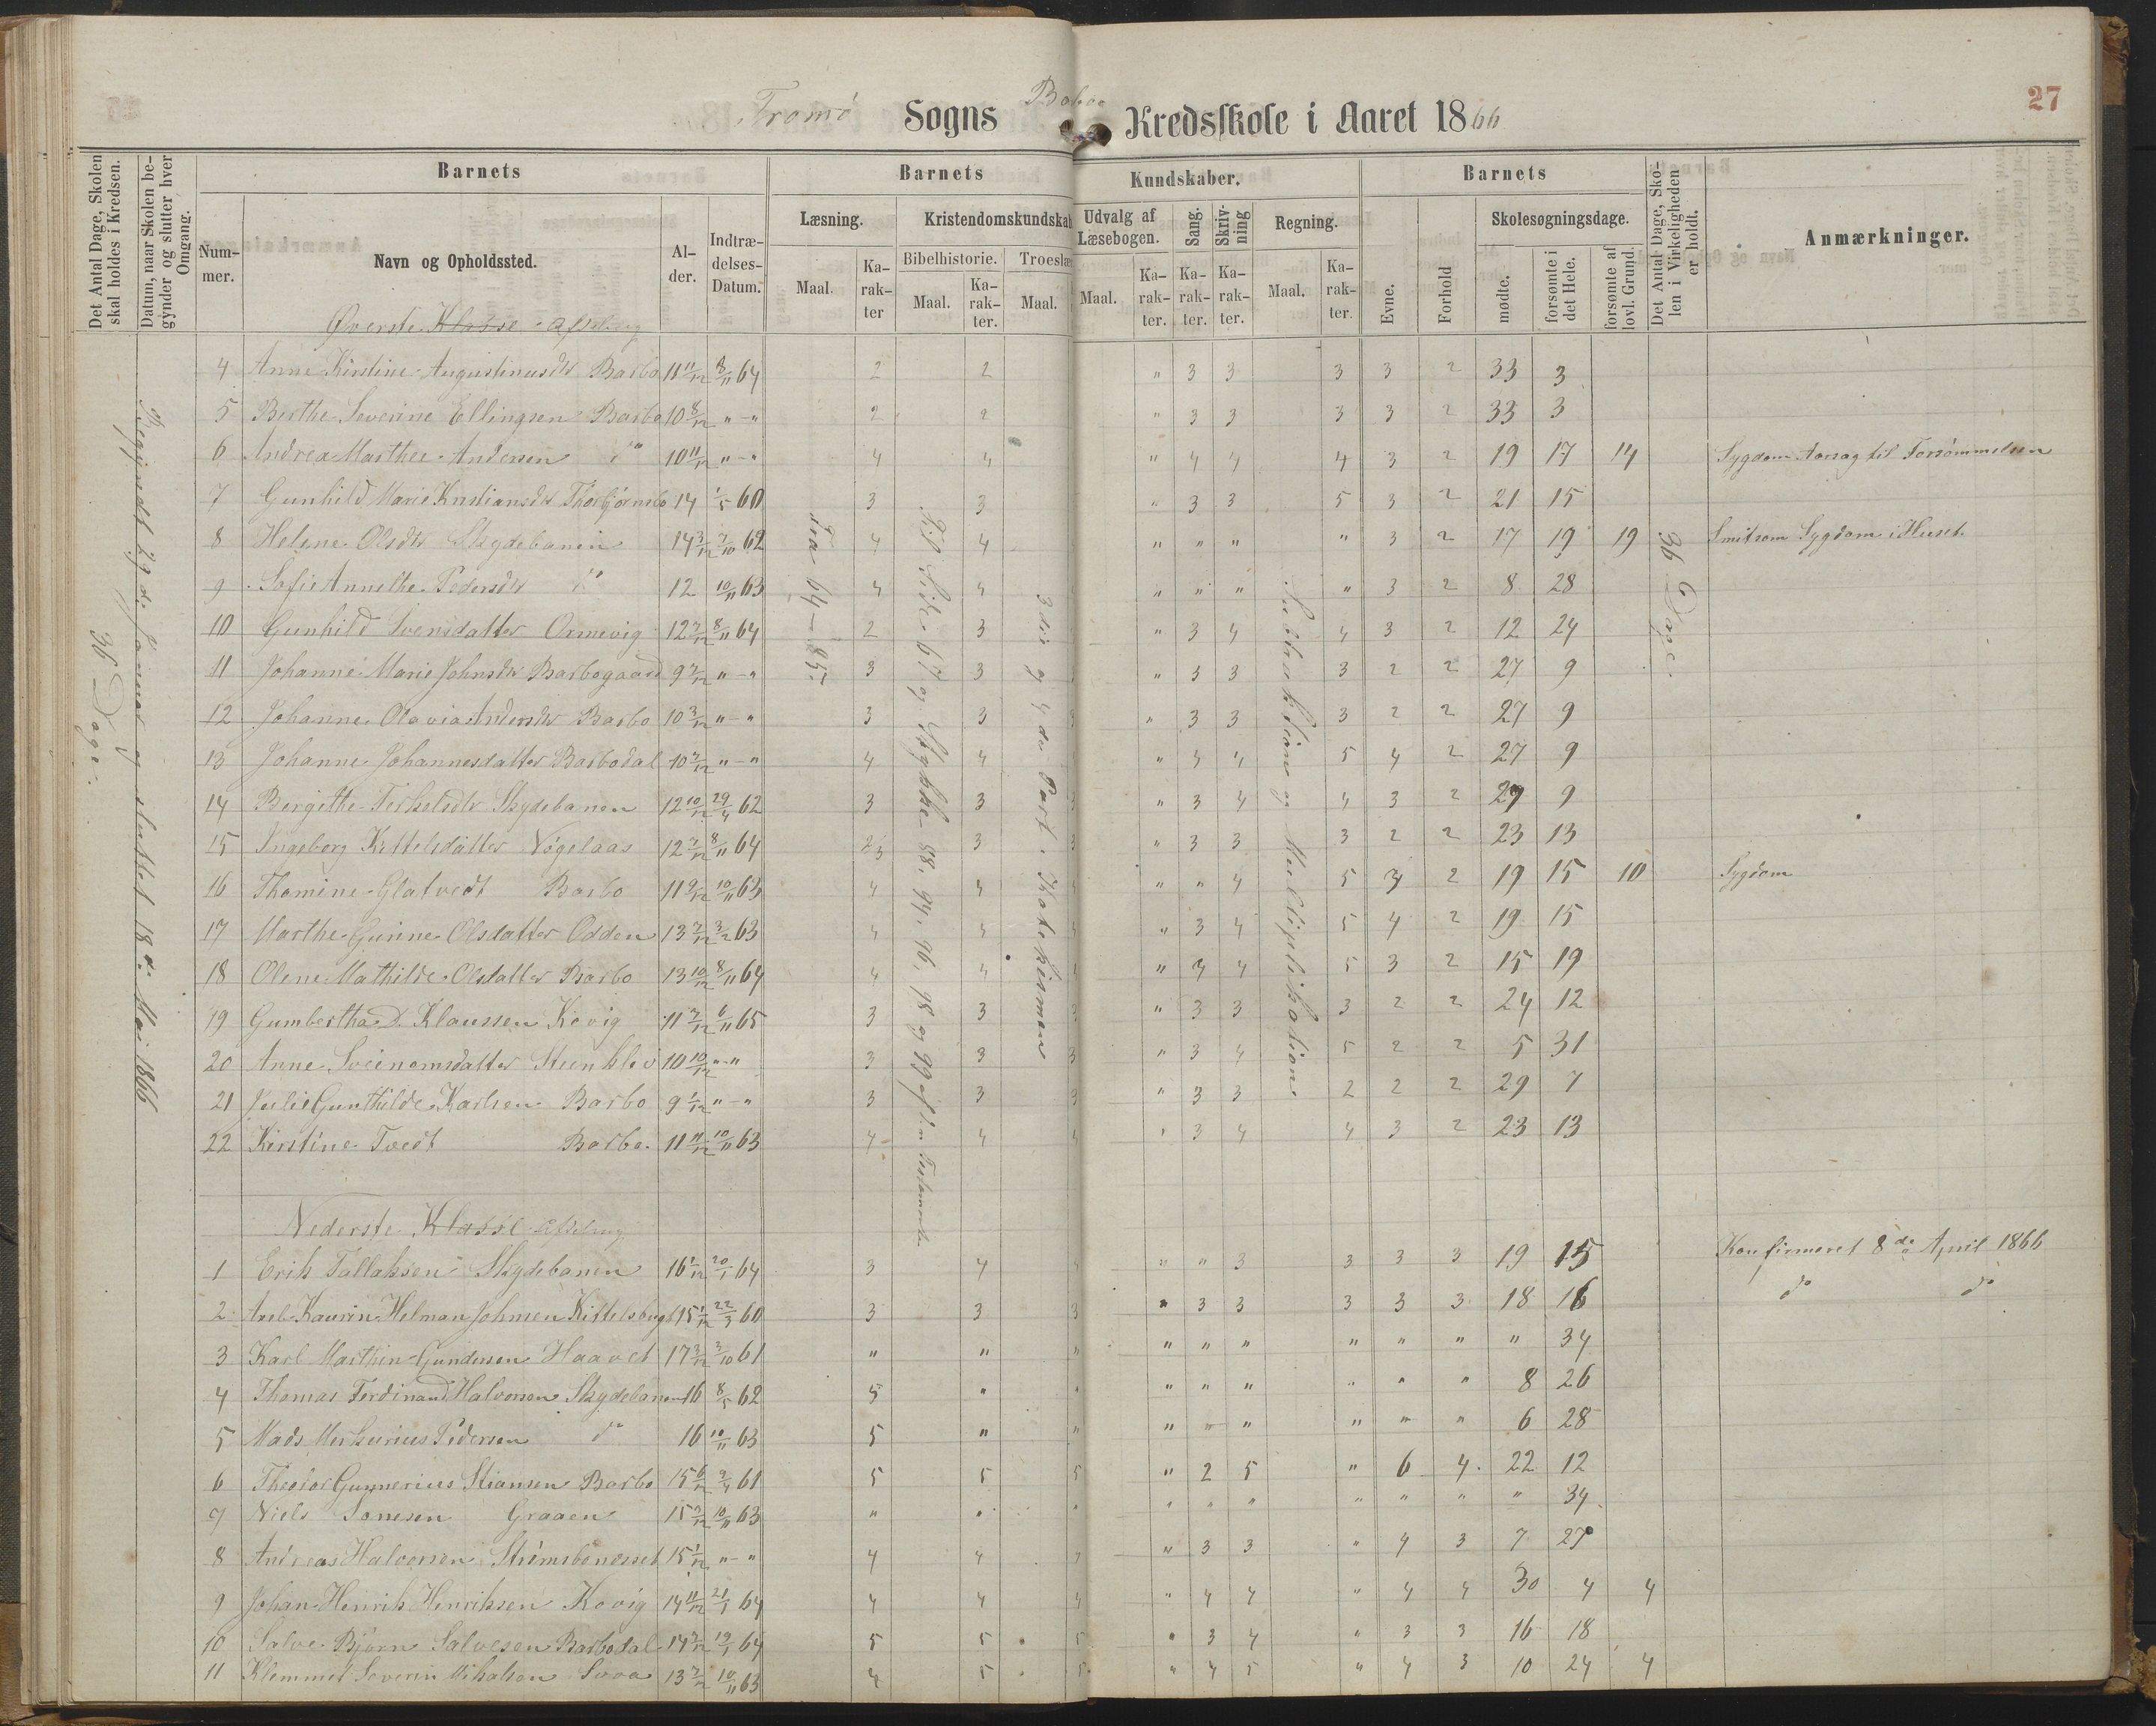 27
Tromø Sogns Barbo Kredsskole i Aaret 1866
Det Antal Dage, Skolen skal holdes i Kredsen.
Datum, naar Skolen begynder og slutter hver Omgang.
Barnets
Barnets
Kundskaber.
Barnets
Det Antal Dage, Skolen i Virkeligheden er holdt.
Anmærkninger.
Nummer.
Navn og Opholdssted.
Alder.
Indtrædelses-Datum.
Læsning.
Kristendomskundskab
Udvalg af Læsebogen.
Sang.
Skrivning
Regning.
Evne.
Forhold
Skolesøgningsdage.
Bibelhistorie.
Troeslær
Maal.
Karakter
Maal.
Karakter.
Maal.
Maal.
Karakter.
Karakter.
Karakter.
Maal.
Karakter.
mødte.
forsømte i det Hele.
forsømte af lovl. Grund.
Øverste Klasse Afdeling
4 Anne Kirstine Augustinusdtr Barbo 11 11/12 8/11 64 2 2 " 3 3 3 3 2 33 3
5 Berthe Severine Ellingsen Barbo 10 8/12 "-" 2 2 " 3 3 3 3 2 33 3
6 Andrea Marthee Andersen do 10 11/12 "-" 4 4 " 4 4 4 3 2 19 17 14 Sygdom Aarsag til Forsømmelsen
7 Gunhild Marie Kristiansdtr Thorbjørnsbo 14 1/5 60 3 3 " 3 3 5 3 2 21 15
8 Helene Olsdtr Skydebanen 14 3/12 7/10 62 4 4 " " " " 3 2 17 19 19 Smitsom Sygdom i Huset.
9 Sofie Annethe Pedersdtr do 12 10/11 63 4 4 " " " " 3 2 8 28
10 Gunhild Svensdatter Ormevig 12 7/12 8/11 64 2 3 " 3 4 4 3 2 12 24
11 Johanne Marie Johnsdtr Barbogaard 9 7/12 "-" 3 3 " 3 3 3 2 2 27 9
12 Johanne Olavia Andersdtr Barbo 10 3/12 "-" 3 3 3 " 3 3 3 2 2 27 9
13 Johanne Johannesdatter Barbodal 10 7/12 "-" 4 4 " 4 4 5 4 2 27 9
14 Bergitte Terkelsdtr Skydebanen 12 10/12 29/4 62 3 3 3 " 3 4 4 3 2 27 9
15 Ingeborg Kittelsdatter Vøgelaas 12 7/12 8/11 64 3 3 3 " 3 3 3 2 2 23 13
16 Thomine Glatvedt Barbo 11 9/12 10/11 63 4 4 4 " " 4 5 3 2 19 15 10 Sygdom
17 Marthe Gunne Olsdatter Odden 13 7/12 3/2 63 4 4 4 " 3 4 5 4 2 19 15
18 Oline Mathilde Olsdatter Barbo 13 10/12 8/11 64 4 4 4 " 4 4 5 3 2 15 19
19 Gumbertha D. Klaussen Kovig 11 7/12 6/11 65 3 3 3 " 3 3 3 2 2 24 12
20 Anne Sveinomsdatter Steenklev 10 10/12 "-" 3 3 3 " 3 4 5 2 2 5 31
21 Julie Gunthilde Karlsen Barbo 9 1/12 "-" 3 3 3 " 3 3 2 2 2 29 7
22 Kirstine Tvedt Barbo. 11 11/12 10/11 63 4 4 4 " 3 4 4 3 2 23 13
Begyndt 29de Januar og sluttet 18de Mai 1866
36 Dage.
Fra 64 - 85
Til Side 67 og Stykke 88, 94, 96, 98 og 99 af n Testamente
3die og 4de Part i Katekismen
Subtraktion og Multiplikation
36 Dage.
Nederste Klasse Afdeling
1 Erik Tallaksen Skydebanen 16 1/12 20/1 64 3 4 " " 3 3 3 3 19 15 Konfirmeret 8de April 1866
2 Kaurin Helman Johnsen Kittelsbugt 15 1/12 22/3 60 3 3 3 " 3 3 3 3 3 18 16 do do
3 Karl Marthin Gundersen Haavet 17 3/12 3/10 61 " " " " " " " " " " 34
4 Thomas Ferdinand Halvorsen Skydebanen 16 8/5 62 5 " " " " " " " " 8 26
5 Mads Merkurius Pedersen do 16 10/11 63 5 " " " " " " " " 6 28
6 Theodor Gunnerius Stiansen Barbo 15 6/12 9/4 61 5 5 5 " 2 5 " 6 4 22 12
7 Niels Sonesen Graaen 15 3/12 10/11 63 " " " " " " " " " " 34
8 Andreas Halvorsen Strømsbonesset 15 1/12 "-" 4 4 " 3 3 " 4 3 7 27
9 Johan Henrik Henriksen Kovig 14 11/12 21/1 64 4 4 4 " 4 4 " 4 4 30 4 4
10 Salve Bjørn Salvesen Barbodal 14 7/12 19/1 64 5 5 5 " 3 4 " 3 3 16 18
11 Klemmet Severin Mikalsen Sova 13 7/12 10/11 63 4 5 5 " 4 5 " 4 3 10 24 4